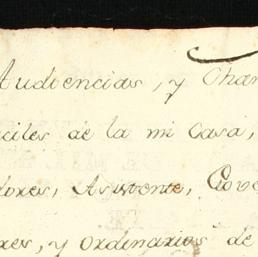 Audiencias, y Chan
ciles de la mi Casa,
dores, Asistente, Gove
res, y ordinarios de